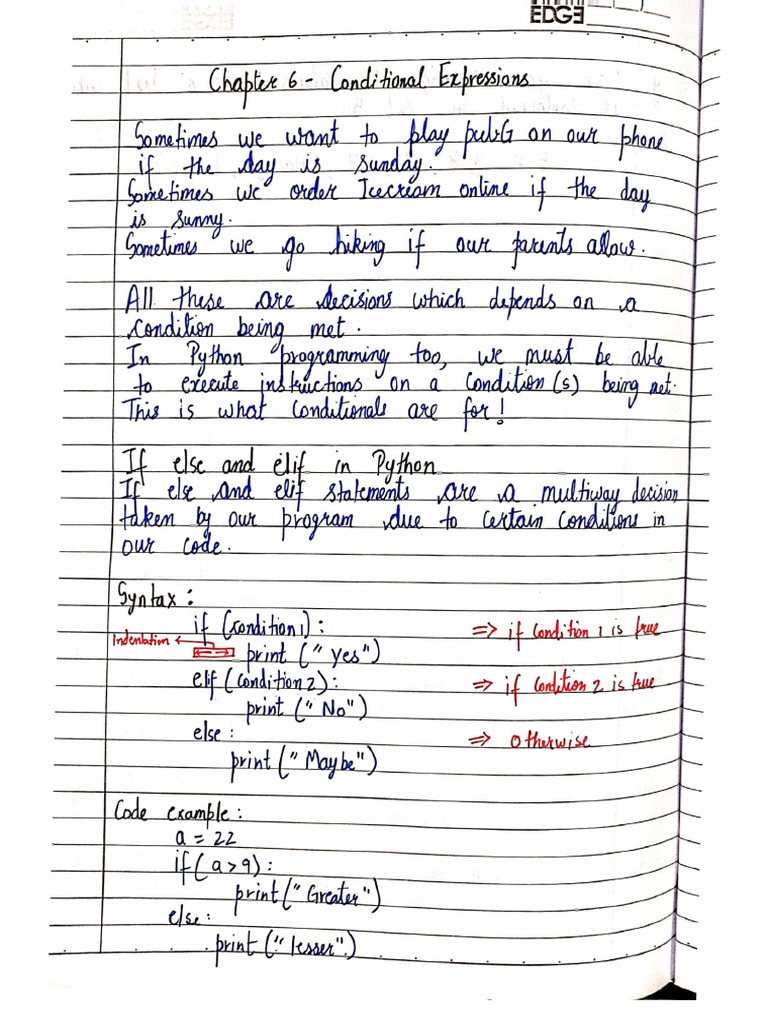 EDGE
Chapter 6 - Conditional Expressions
Sometimes we want to play pubG on our phone
if the day is sunday.
Sometimes we order Icecream online if the day
is sunny.
Sometimes we go hiking if our parents allow.
All these are decisions which depends on a
condition being met.
In Python programming too, we must be able
to execute instructions on a condition(s) being met.
This is what conditionals are for!
If else and elif in Python
If else and elif statements are a multiway decision
taken by our program due to certain conditions in
our code.
Syntax :
if (condition1) : => if condition 1 is true
Indentation
print (" yes")
elif (condition2) : => if condition 2 is true
print (" No")
else : => otherwise
print (" Maybe")
Code example :
a = 22
if( a > 9) :
print (" Greater")
else :
print (" lesser")